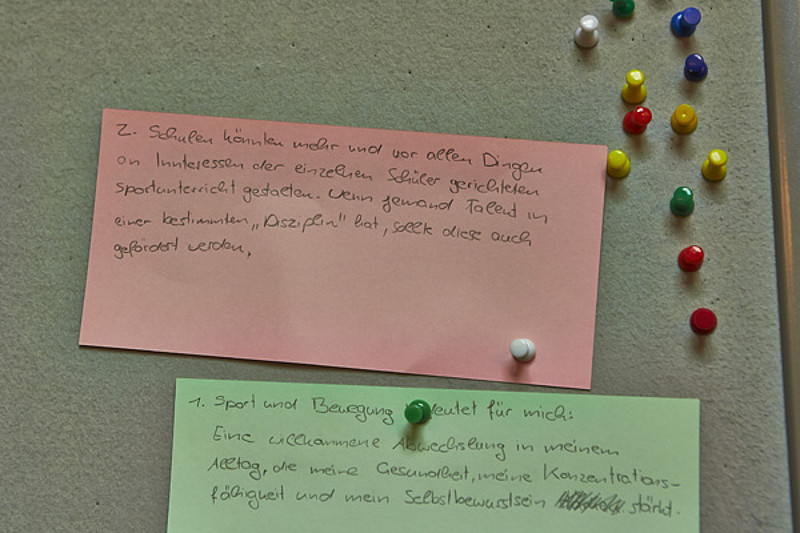 2. Schulen könnten mehr und vor allen Dingen
an Innteressen der einzelnen Schüler gerichteten
Sportunterricht gestalten. Wenn jemand Talent in
einer bestimmten „Disziplin" hat, sollte diese auch
gefördert werden,
1. Sport und Bewegung deutet für mich:
Eine willkommene Abwechslung in meinem
Alltag, die meine Gesundheit, meine Konzentrations-
fähigkeit und mein Selbstbewusstsein stärkt.